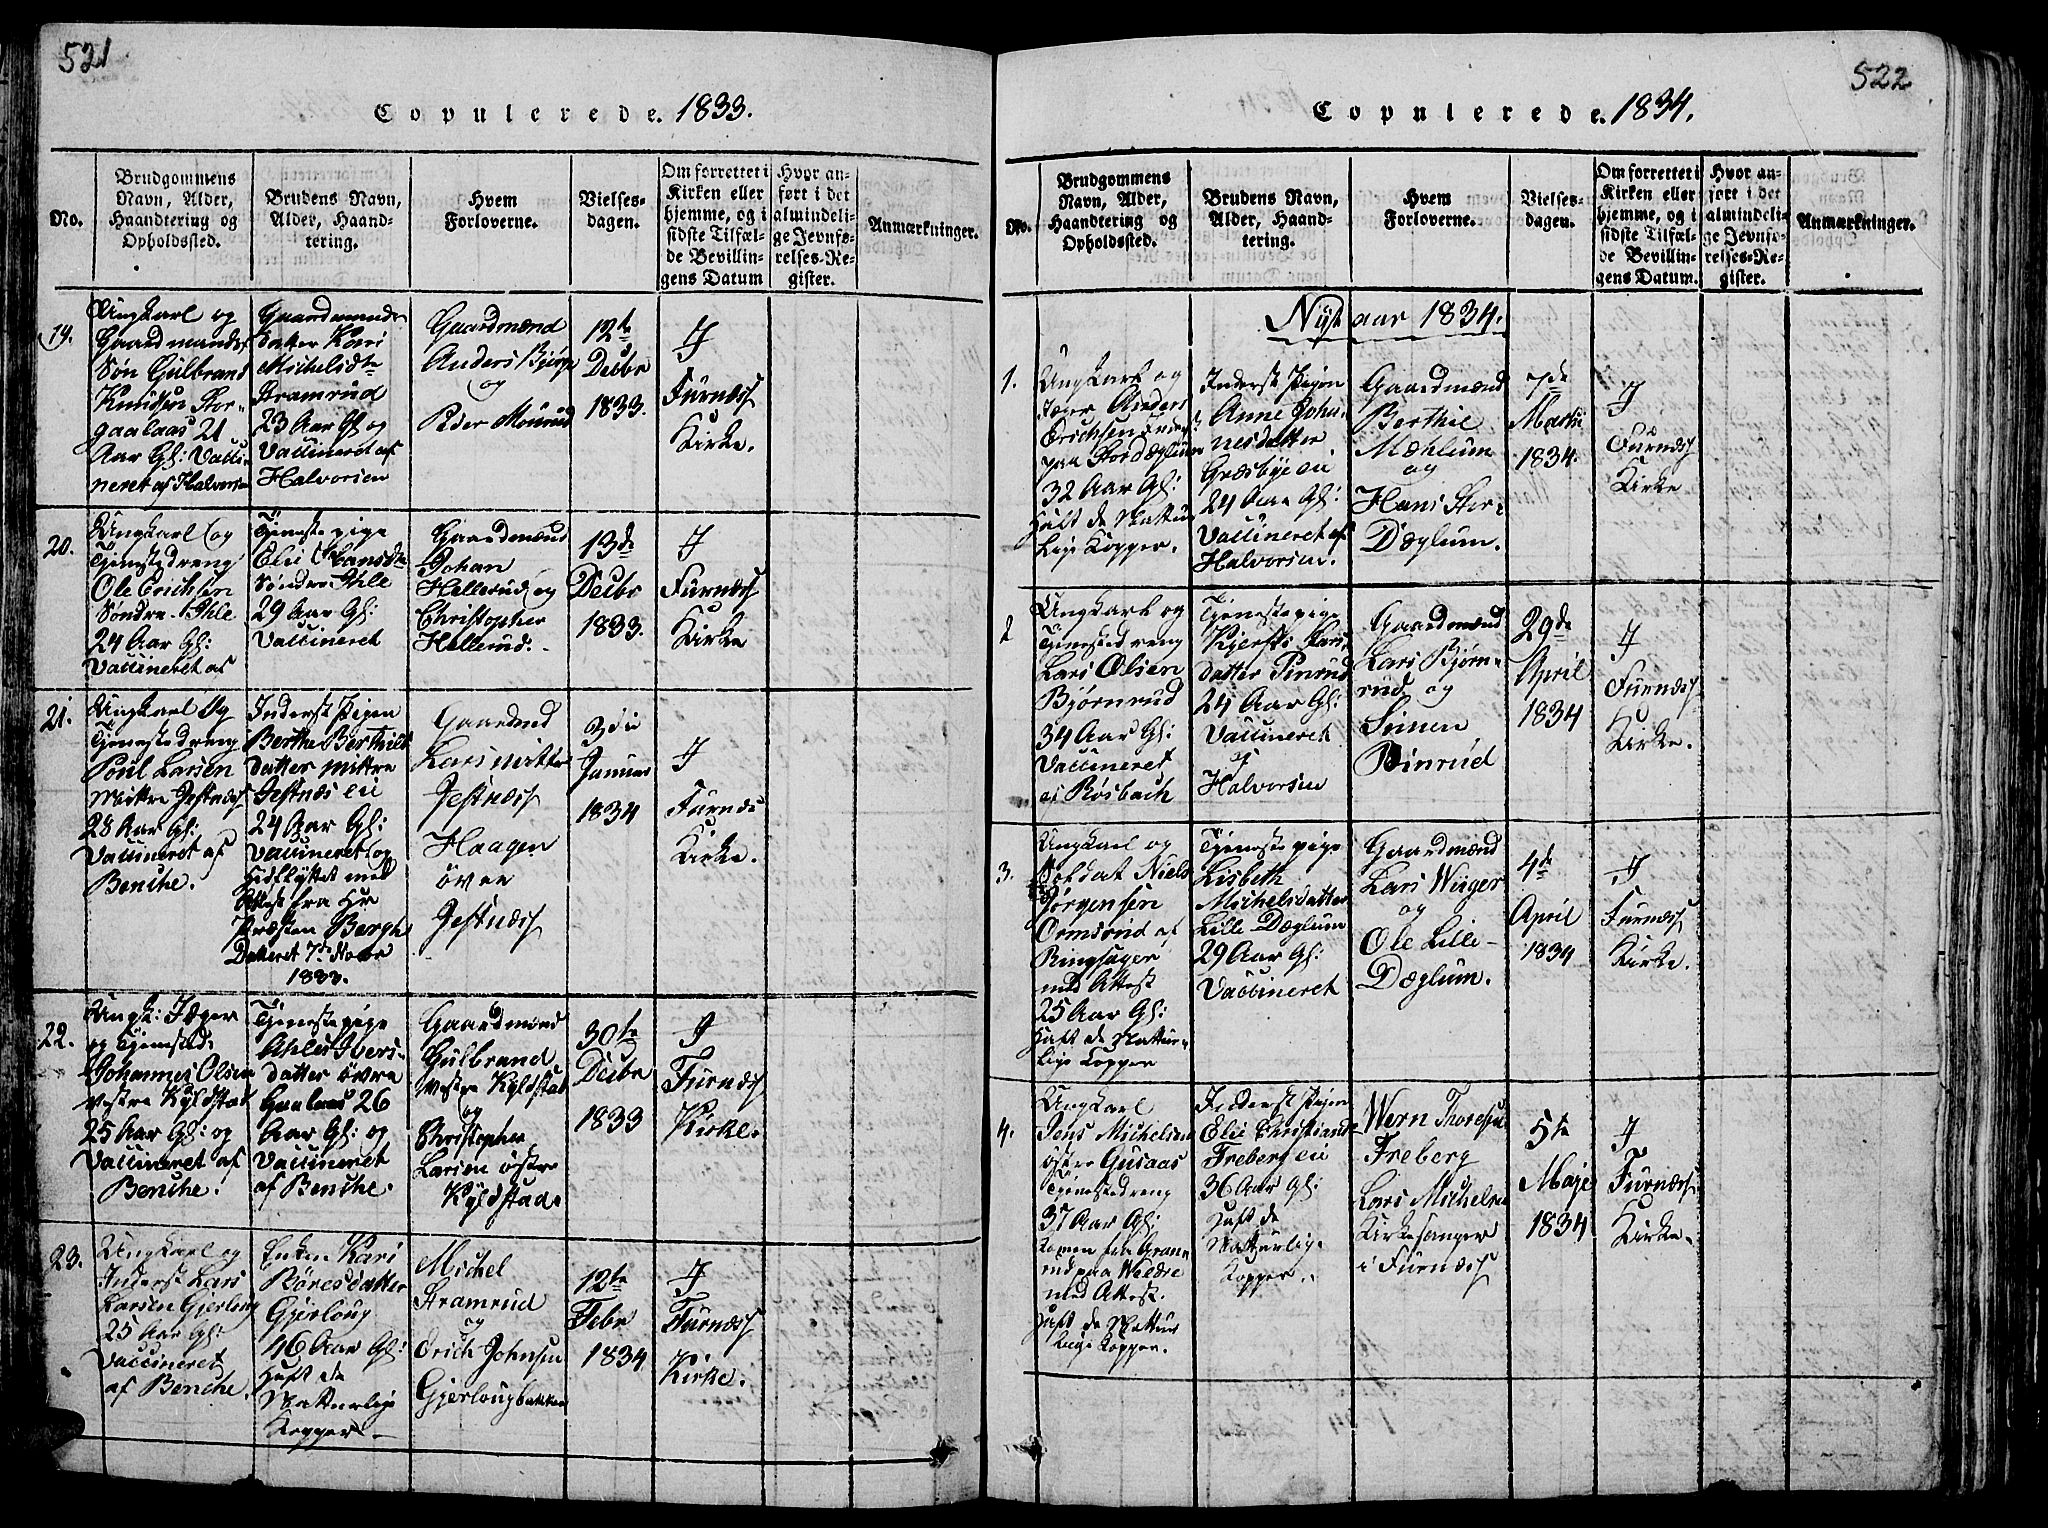 521
Copulerede. 1833.
No.
Brudgommens
Navn, Alder,
Haandtering og
Opholdssted.
Brudens Navn,
Alder, Haand-
tering.
Hvem
Forloverne.
Vielses-
dagen.
Om forrettet i
Kirken eller
hjemme, og i
sidste Tilfæl-
de Bevillin-
gens Datum
Hvor an-
ført i det
almindeli-
ge Jevnfø-
relses-Re-
gister.
Anmærkninger.
19.
Ungkarl og
Gaardmands
Søn Gulbrand
Knudsen Stor-
gaalaas 21
Aar Gl: Vacci-
neret af Halvorsen
Gaardmands
Datter Kari
Michelsdtr
Stramrud
23 Aar Gl og
Vaccineret af
Halvorsen
Gaardmænd
Anders Bjørge
og
Peder Mourud
12te
Decbr
1833.
I
Furnæss
Kirke.
20.
Ungkarl og
Tjenestedreng
Ole Erichsen
Søndre Ihle
24 Aar Gl:
Vaccineret af
Tjenestepige
Elie Hansdtr
Søndre Ihle
29 Aar Gl:
Vaccineret
Gaardmænd
Johan
Hellerud og
Christopher
Hellerud.
13de
Decbr
1833.
I
Furnæss
Kirke
21.
Ungkarl Og
Tjenestedreng
Poul Larsen
Mittre Jestnæss
28 Aar Gl:
Vaccineret af
Benche.
Inderst Pigen
Berthe Berthils
datter mittre
Jestnæs eie
24 Aar Gl:
Vaccineret og
hidflyttet med
Attest fra Hr
Præsten Bergh
Dateret 7de Novbr
1833.
Gaardmd
Lars mittre
Jestnæss
Haagen
övre
Jestnæss
3die
Januar
1834
I
Furnæs
Kirke.
22.
Ungk: Jæger
og Tjenested:
Johannes Olsen
Vestre Kyldstad
25 Aar Gl: og
Vaccineret af
Benche.
Tjenestepige
Ahlet Ivers-
datter övre
Gaalaas 26
Aar Gl: og
Vaccineret
af Benche.
Gaardmænd
Gulbrand
Vestre Kyldstad
og
Christopher
Larsen östre
Kyldstad.
30te
Decbr
1833
I
Furnæss
Kirke.
23.
Ungkarl og
Inderst Lars
Larsen Gjerloug
25 Aar Gl:
Vaccineret
af Benche.
Enken Kari
Röresdatter
Gjerloug
46 Aar Gl:
Haft de
Naturlige
Kopper.
Michel
Stramrud
og
Erich Johnsen
Gjerlougbakken
12te
Febr
1834
I
Furnæss
Kirke.
522
Copulerede. 1834.
No.
Brudgommens
Navn, Alder,
Haandtering og
Opholdssted.
Brudens Navn,
Alder, Haand-
tering.
Hvem
Forloverne.
Vielses-
dagen.
Om forrettet i
Kirken eller
hjemme, og i
sidste Tilfæl-
de Bevillin-
gens Datum.
Hvor an-
ført i det
almindeli-
ge Jevnfø-
relses-Re-
gister.
Anmærkninger.
Nyt aar 1834.
1.
Ungkarl og
Jæger Anders
Erichsen
paa Stordæglum
32 Aar Gl:
haft de Nattur-
lige Kopper.
Inderst Pigen
Anne Johan-
nesdatter
Græsbye eie
24 Aar Gl:
Vaccineret af
Halvorsen.
Gaardmænd
Berthil
Mæhlum
og
Hans Stor-
Dæglum.
7de
Martii
1834.
I
Furnæss
Kirke
2
Ungkarl og
Tjenestedreng
Lars Olsen
Bjørnrud
34 Aar Gl:
Vaccineret
af Røsbach
Tjenestepige
Kjersti Lars-
datter Pinrud
24 Aar Gl:
Vaccineret
af
Halvorsen
Gaardmænd
Lars Bjørn-
rud og
Simen
Pinrud
29de
April
1834
I
Furnæss
Kirke.
3.
Ungkarl og
Soldat Niels
Jörgensen
Ormsrud af
Ringsager
med Attest
25 Aar Gl:
haft de Nattur-
lige Kopper
Tjenestepige
Lisbeth
Michelsdatter
Lille Dæglum
29 Aar Gl:
Vaccineret
Gaardmænd
Lars Wiiger
og
Ole Lille-
Dæglum.
4de
April
1834
I
Furnæss
Kirke.
4.
Ungkarl
Jens Michelsen
östre Gusaas
Tjenestedreng
37 Aar Gl:
Kommen fra Gran-
med Attest.
haft de Nattur
lige Kopper.
Inderst Pigen
Elie Christians
Freberg eie
36 Aar Gl:
haft de
Natturlige
Kopper.
Wern Thoresen
Freberg
Lars Michelsen
Kirkesanger
i Furnæss
5te
Maje
1834
I
Furnæss
Kirke.